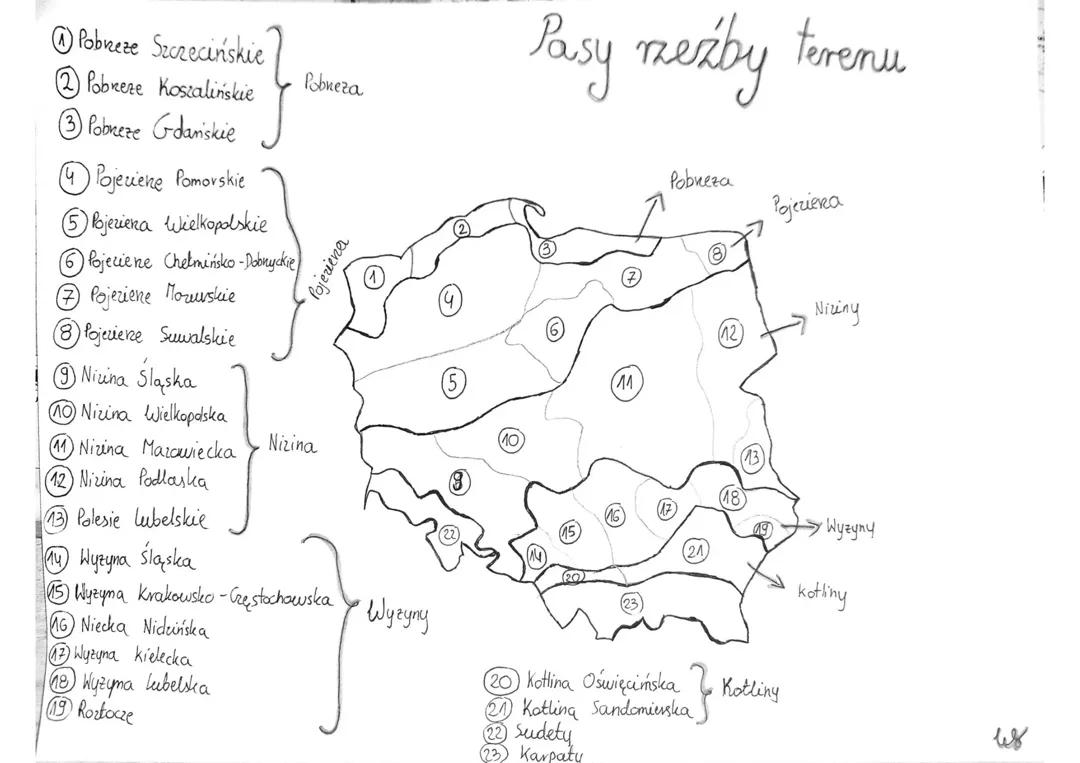 Pasy rzeźby terenu
① Pobrzeże Szczecińskie
② Pobrzeże Koszalińskie
③ Pobrzeże Gdańskie
Pobrzeża
④ Pojezierze Pomorskie
⑤ Pojezierza Wielkopolskie
⑥ Pojezierze Chełmińsko-Dobrzyckie
⑦ Pojezierze Mazurskie
⑧ Pojezierze Suwalskie
Pojezierza
⑨ Nizina Śląska
⑩ Nizina Wielkopolska
⑪ Nizina Mazowiecka
⑫ Nizina Podlaska
⑬ Polesie Lubelskie
Nizina
⑭ Wyżyna Śląska
⑮ Wyżyna Krakowsko-Częstochowska
⑯ Niecka Nidzińska
⑰ Wyżyna Kielecka
⑱ Wyżyna Lubelska
⑲ Roztocze
Wyżyny
Pobrzeża
Pojezierza
Niziny
Wyżyny
kotliny
①
②
③
④
⑤
⑥
⑦
⑧
⑨
⑩
⑪
⑫
⑬
⑭
⑮
⑯
⑰
⑱
⑲
⑳
㉑
㉒
㉓
⑳ Kotlina Oświęcimska
㉑ Kotlina Sandomierska
Kotliny
㉒ Sudety
㉓ Karpaty